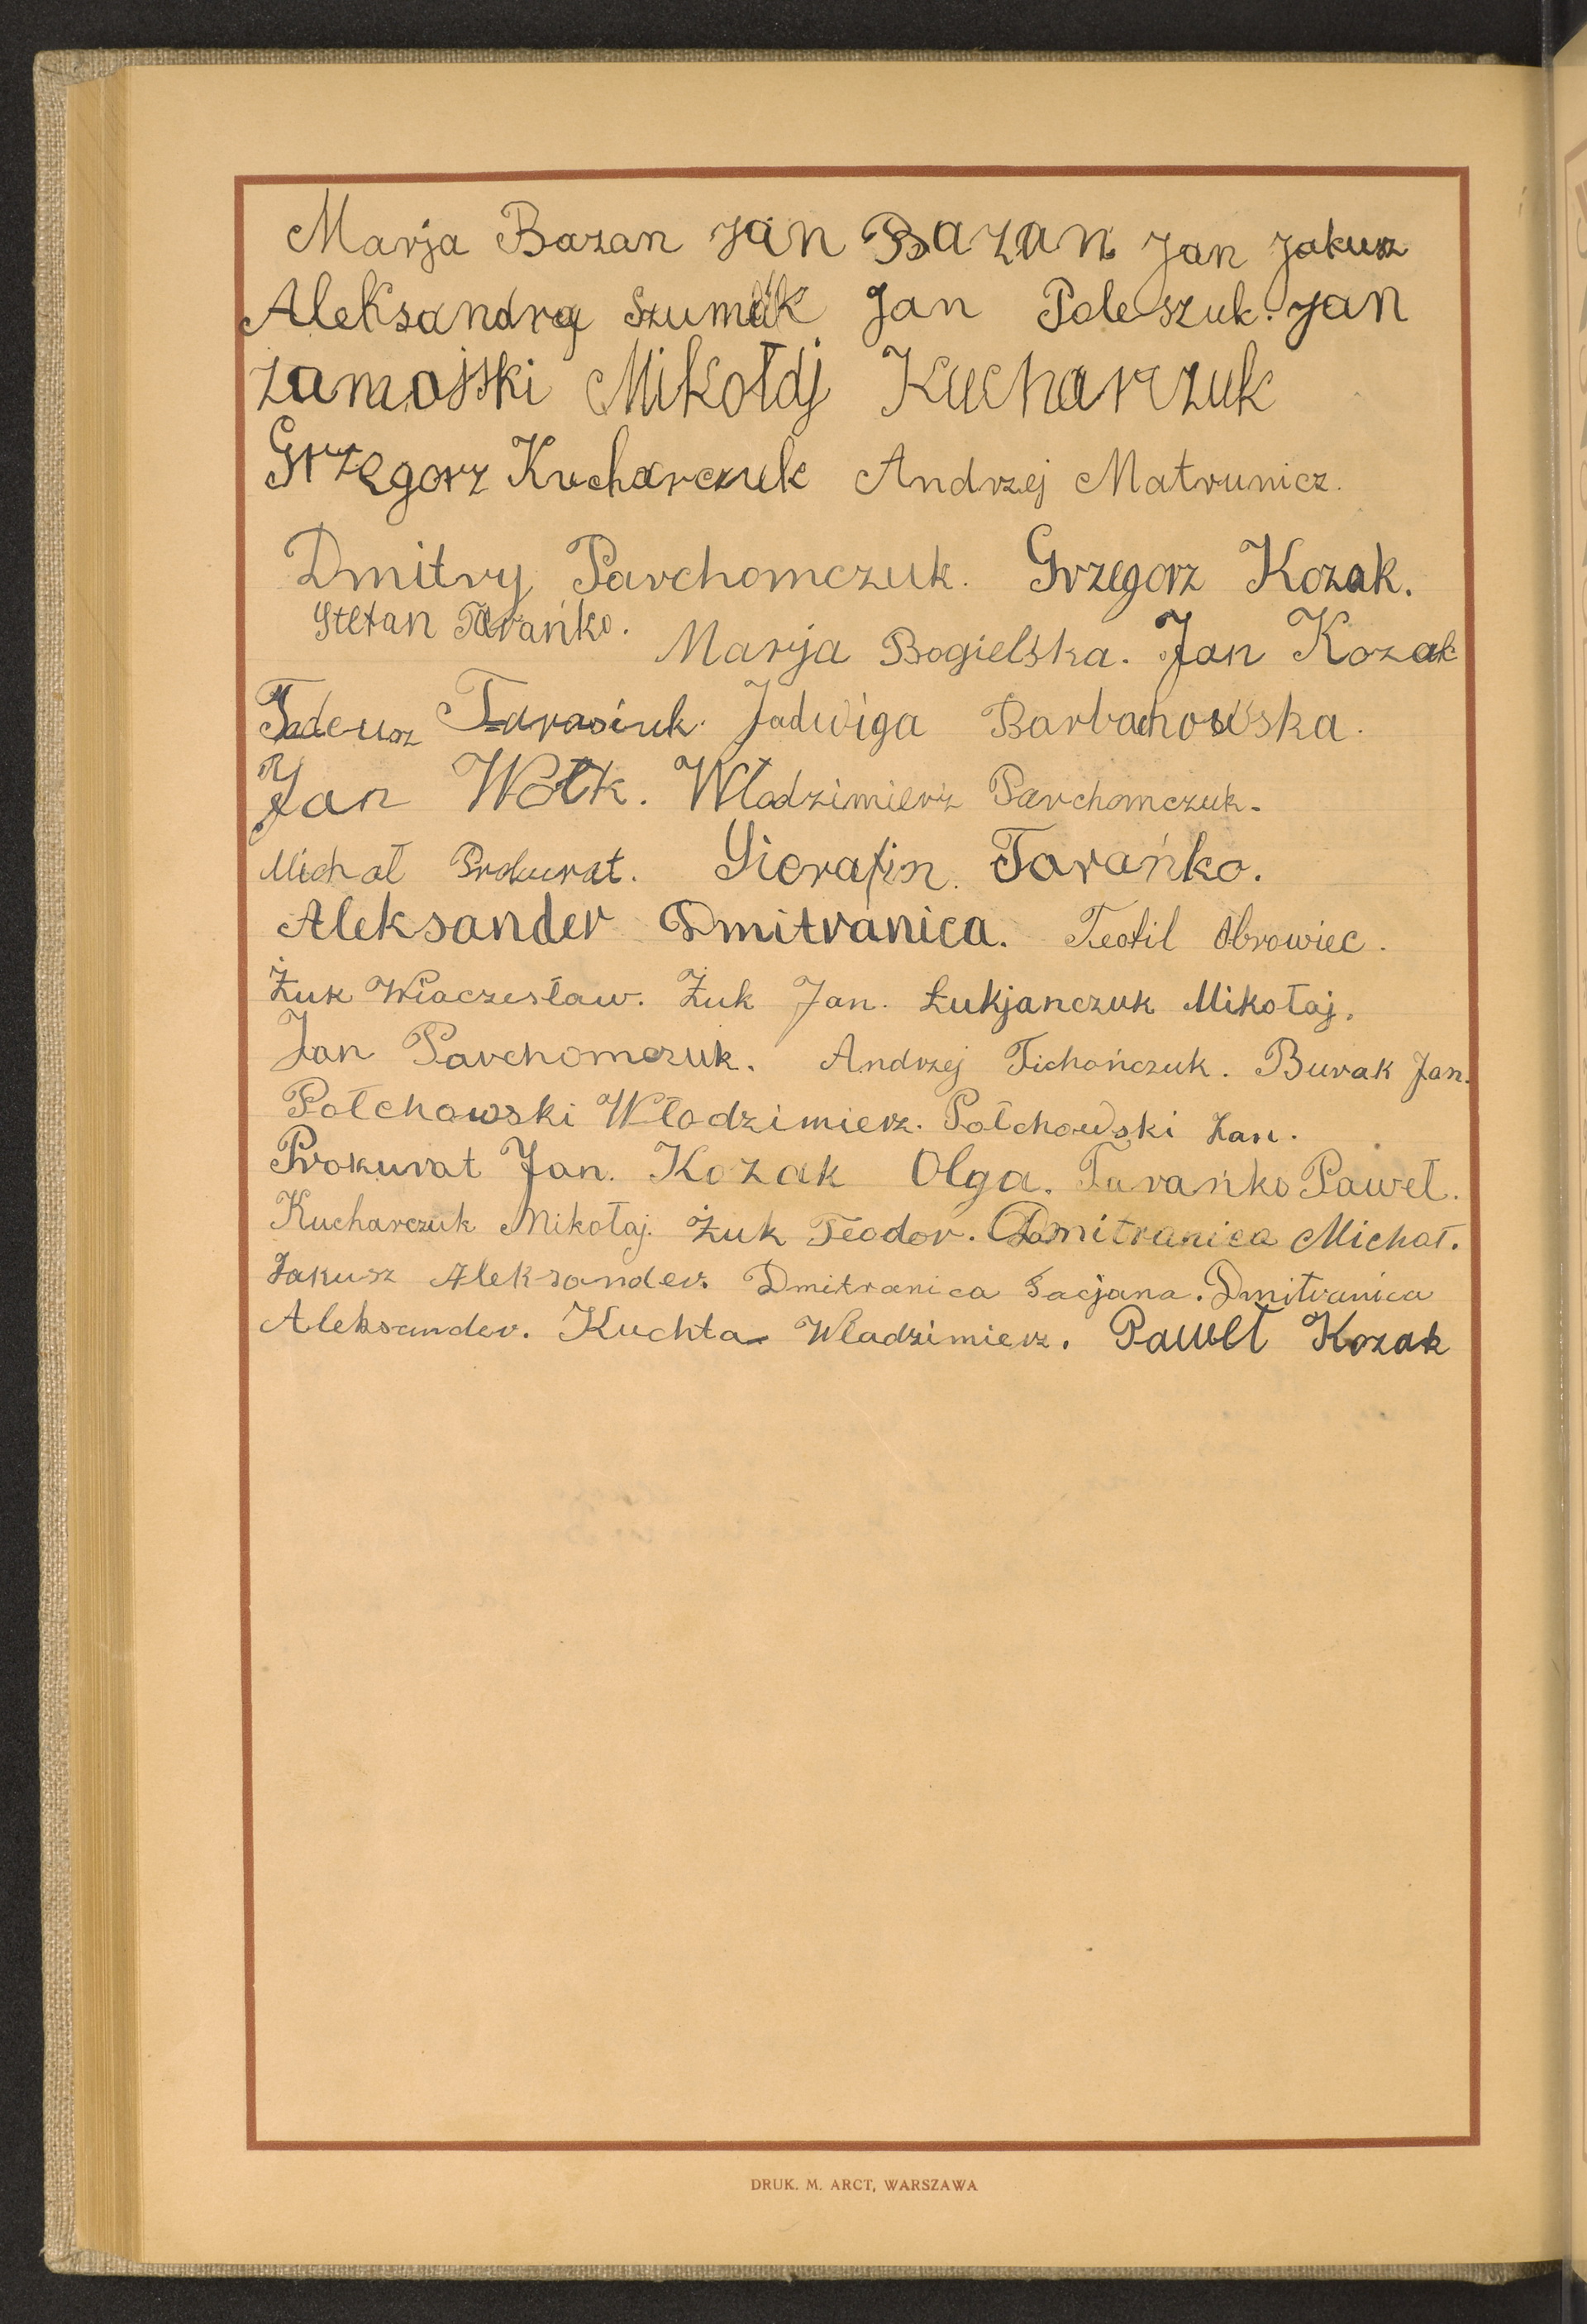 Marja Bazan Jan Bazan Jan Jakusz
Aleksandra Szumik Jan Poleszuk. Jan
Zamojski Mikołaj Kucharzuk
Grzegorz Kucharczuk Andrzej Matrunicz.
Dmitry Parchomczuk. Grzegorz Kozak.
Stefan Tarańko. Marja Bogielska. Jan Kozak
Tadeusz Tarasiuk. Jadwiga Barbachowska.
Jan Wołk. Włodzimierz Parchomczuk.
Michał Prokurat. Sierafin Tarańko.
Aleksander Dmitranica. Teofil Obrowiec.
Żuk Wiaczesław. Żuk Jan. Łukjanczuk Mikołaj.
Jan Parchomczuk. Andrzej Tichończuk. Burak Jan.
Połchowski Włodzimierz. Połchowski Jan.
Prokurat Jan. Kozak Olga. Tarańko Paweł.
Kucharczuk Mikołaj. Żuk Teodor. Dmitranica Michał.
Jakusz Aleksander. Dmitranica Tacjana. Dmitranica
Aleksander. Kuchta Wladzimierz. Paweł Kozak
DRUK. M. ARCT, WARSZAWA